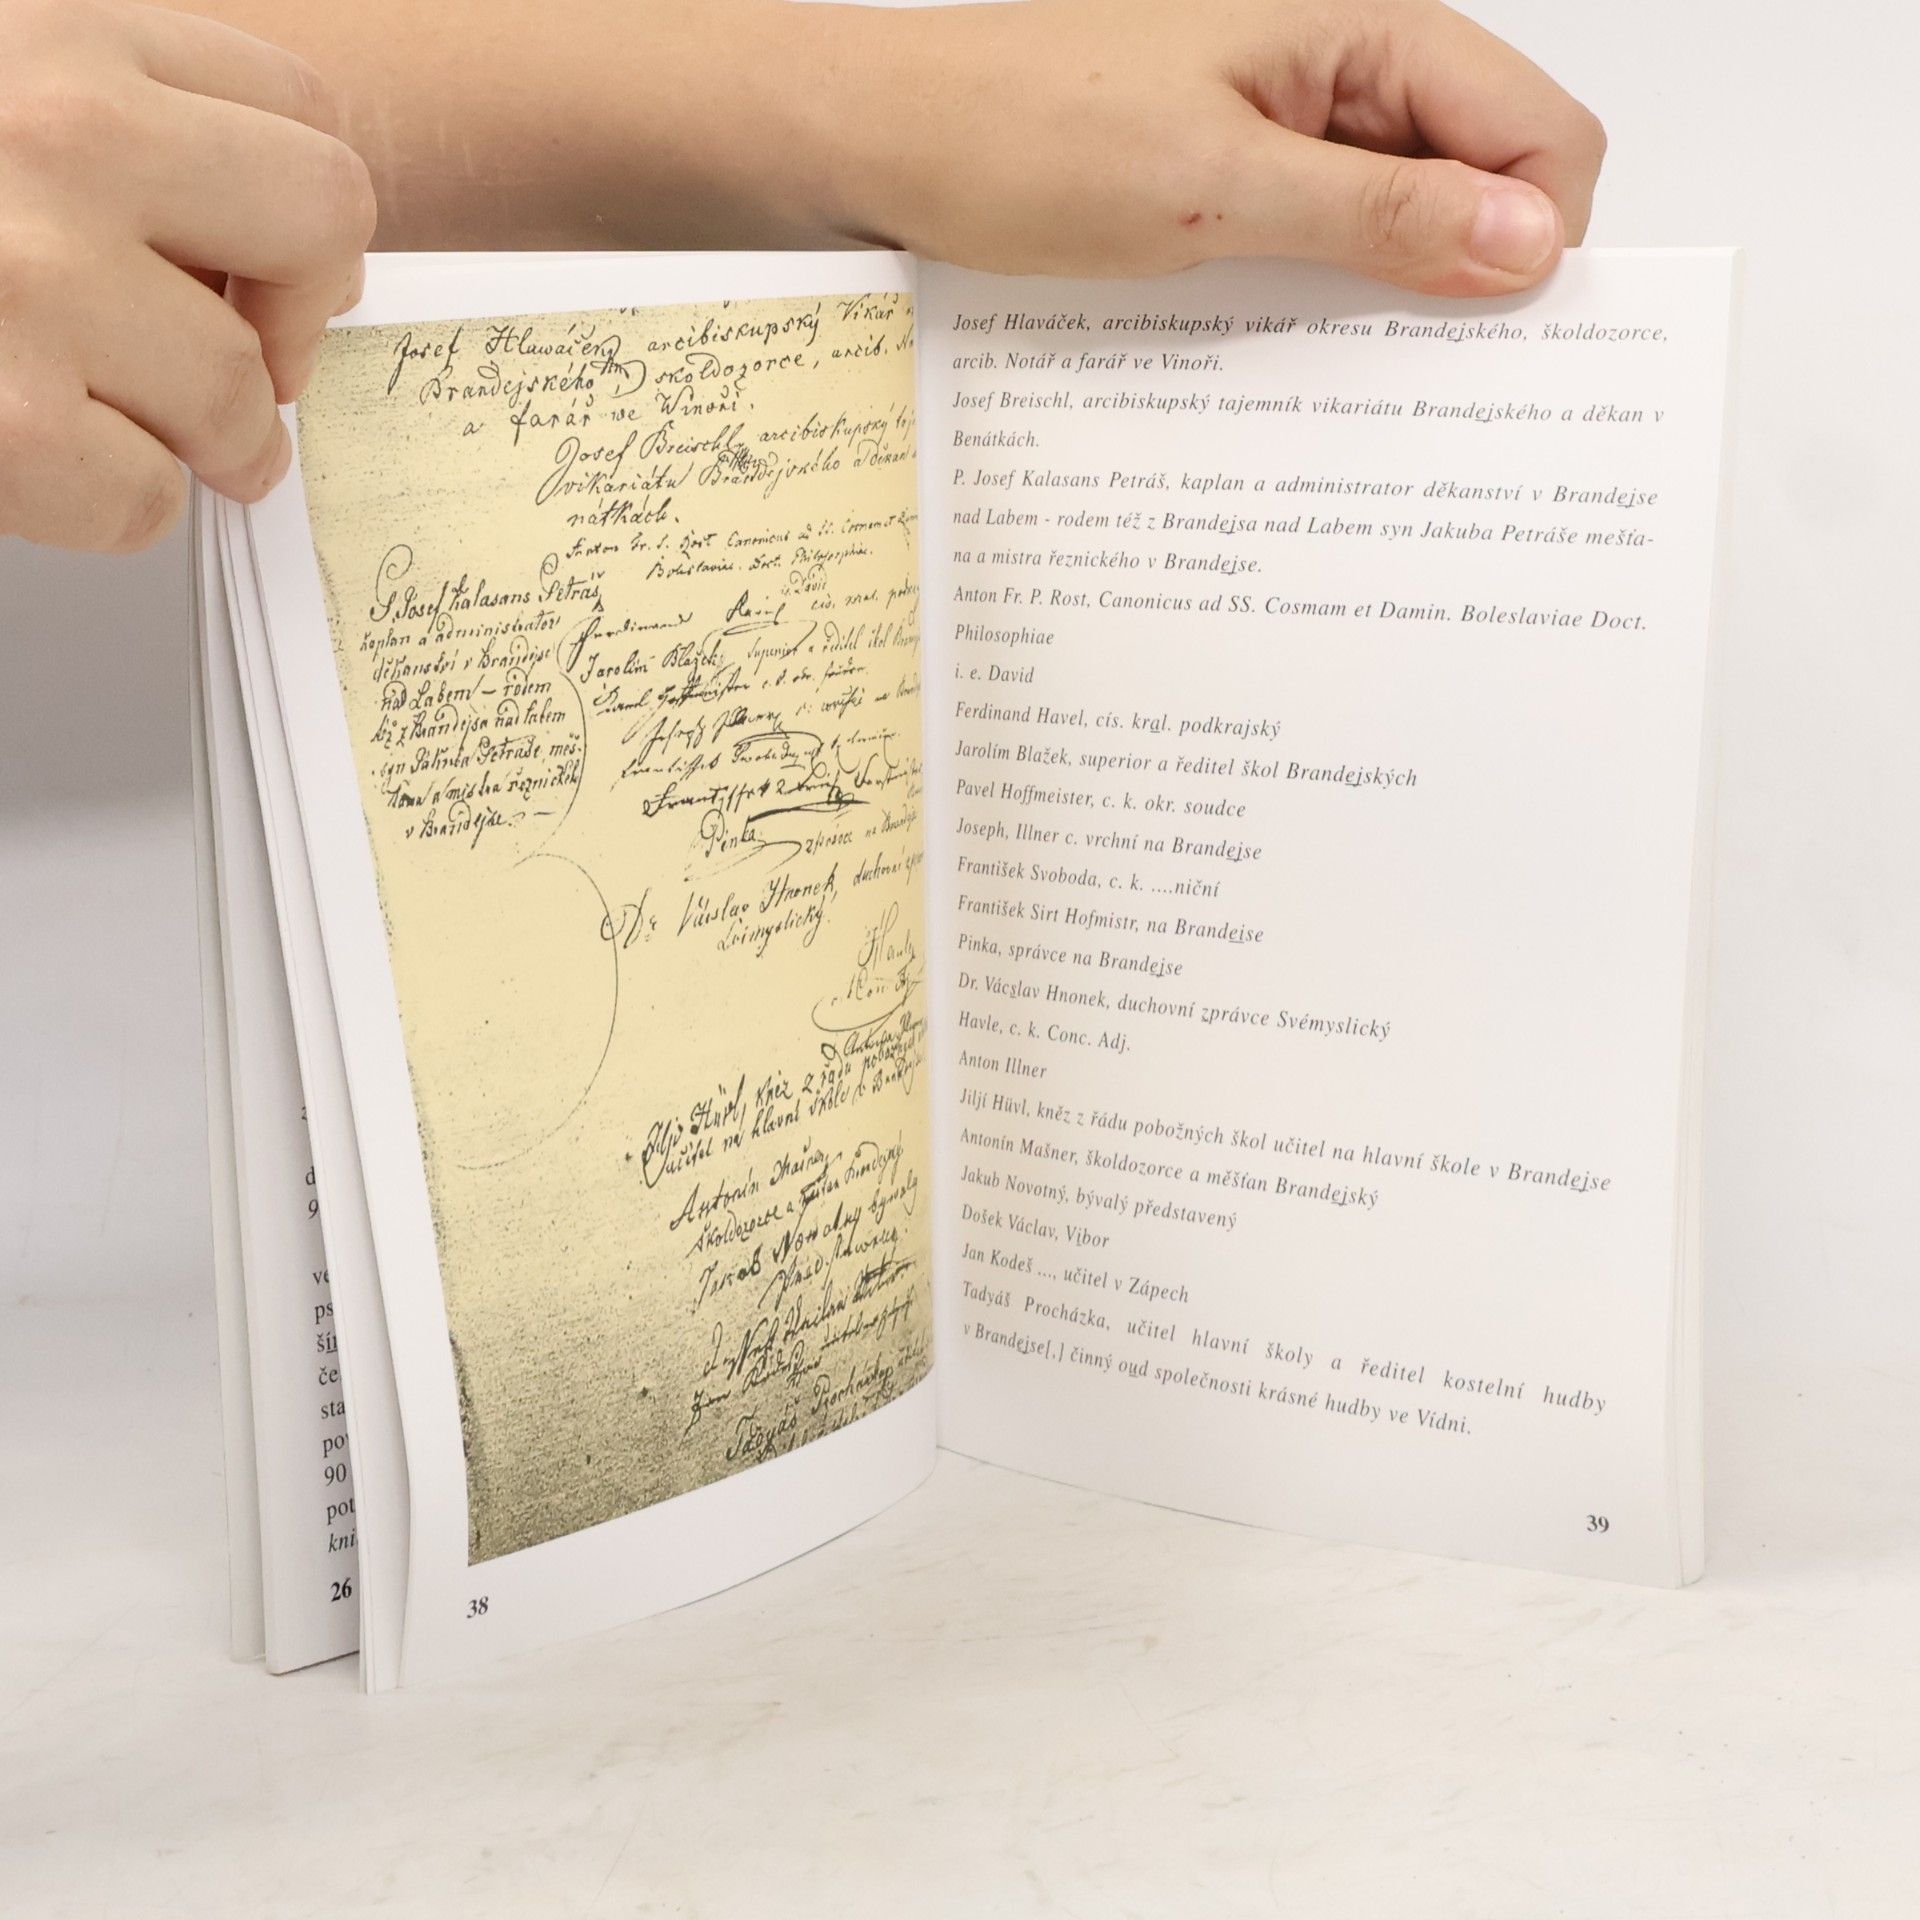 Josef Hlawáček, arcibiskupský Vikář
Brandejského školdozorce, arcib.
a farář we Winoři.
Josef Breischl, arcibiskupský
vikariátu Brandejského a děkan
nátkách.
Anton Fr. P. Rost Canonicus ad SS. Cosmam et
Boleslaviae. Doct. Philosophiae.
i. e. David
P. Josef Kalasans Petráš,
kaplan a administrator
děkanství v Brandejse
nad Labem – rodem
též z Brandejsa nad Labem
syn Jakuba Petráše měš-
ťana a mistra řeznického
v Brandejse. –
Ferdinand Havel cís. kral.
Jarolím Blažek, superior a ředitel škol
Pavel Hoffmeister c. k. okr. soudce.
Joseph Illner c. vrchní na
František Svoboda
František
Pinka, správce na Brandejse
Dr. Václav Hnonek, duchovní
Svémyslický.
Havle
c. k. Con. Adj.
Anton Illner
Jiljí Hüvl, kněz z řádu pobožných
učitel na hlavní škole v
Antonín Mašner,
školdozorce a měšťan Brandejský
Jakob Nowotny bywaly
Předstaweny.
Došek Václav
Jan Kodeš
Tadyáš Procházka
38
ve
ps
ší
če
sta
po
90
pot
kni
26
Josef Hlaváček, arcibiskupský vikář okresu Brandejského, školdozorce,
arcib. Notář a farář ve Vinoři.
Josef Breischl, arcibiskupský tajemník vikariátu Brandejského a děkan v
Benátkách.
P. Josef Kalasans Petráš, kaplan a administrator děkanství v Brandejse
nad Labem - rodem též z Brandejsa nad Labem syn Jakuba Petráše mešťa-
na a mistra řeznického v Brandejse.
Anton Fr. P. Rost, Canonicus ad SS. Cosmam et Damin. Boleslaviae Doct.
Philosophiae
i. e. David
Ferdinand Havel, cís. kral. podkrajský
Jarolím Blažek, superior a ředitel škol Brandejských
Pavel Hoffmeister, c. k. okr. soudce
Joseph, Illner c. vrchní na Brandejse
František Svoboda, c. k. ....niční
František Sirt Hofmistr, na Brandeise
Pinka, správce na Brandejse
Dr. Vácslav Hnonek, duchovní zprávce Svémyslický
Havle, c. k. Conc. Adj.
Anton Illner
Jiljí Hüvl, kněz z řádu pobožných škol učitel na hlavní škole v Brandejse
Antonín Mašner, školdozorce a měšťan Brandejský
Jakub Novotný, bývalý představený
Došek Václav, Vibor
Jan Kodeš ..., učitel v Zápech
Tadyáš Procházka, učitel hlavní školy a ředitel kostelní hudby
v Brandejse[,] činný oud společnosti krásné hudby ve Vídni.
39